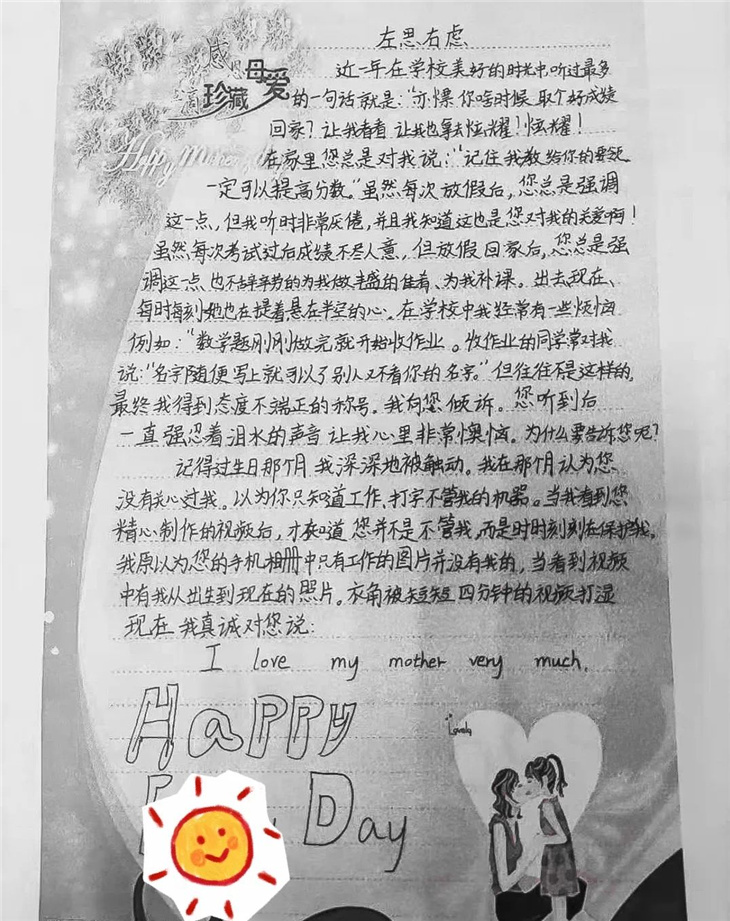 左思右虑
感恩母爱
珍藏
Happy Mother's Day
近一年在学校美好的时光中,听过最多
的一句话就是:“亦惈你啥时候取个好成绩
回家?让我看看让我也拿去炫耀!炫耀!
在家里您总是对我说:“记住我教给你的要领
一定可以提高分数。”虽然每次放假后,您总是强调
这一点,但我听时非常厌倦,并且我知道这也是您对我的关爱啊!
虽然每次考试过后成绩不尽人意,但放假回家后,您总是强
调这一点也不辞辛劳的为我做丰盛的佳肴、为我补课。出去现在、
每时每刻她也在提着悬在半空的心。在学校中我经常有一些烦恼
例如:“数学题刚刚做完就开始收作业。收作业的同学常对我
说:“名字随便写上就可以了别人又不看你的名字。”但往往不是这样的,
最终我得到态度不端正的称号。我向您倾诉。您听到后
一直强忍着泪水的声音让我心里非常懊恼。为什么要告诉您呢?
记得过生日那个月我深深地被触动。我在那个月认为您
没有关心过我。以为你只知道工作、打字不管我的机器。当我看到您
精心制作的视频后,才知道您并不是不管我,而是时时刻刻在保护我。
我原以为您的手机相册中只有工作的图片并没有我的,当看到视频
中有我从出生到现在的照片。衣角被短短四分钟的视频打湿
现在我真诚对您说:
I love my mother very much.
Happy
Day
Lovely